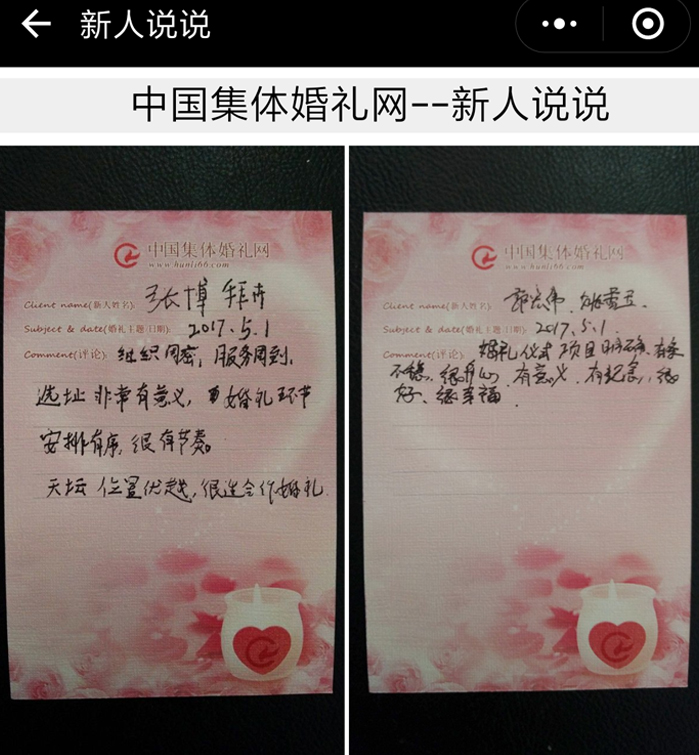 新人说说
中国集体婚礼网--新人说说
中国集体婚礼网
www.hunli66.com
Client name(新人姓名): 张博
Subject & date(婚礼主题 日期): 2017.5.1
Comment(评论): 组织周密，服务周到、
选址 非常有意义，婚礼环节
安排有序，很有节奏。
天坛 位置优越，很适合作婚礼
中国集体婚礼网
www.hunli66.com
Client name(新人姓名):
Subject & date(婚礼主题 日期): 2017.5.1
Comment(评论): 婚礼仪式 项目
不错、很开心 有意义、有纪念，很
好、很幸福．